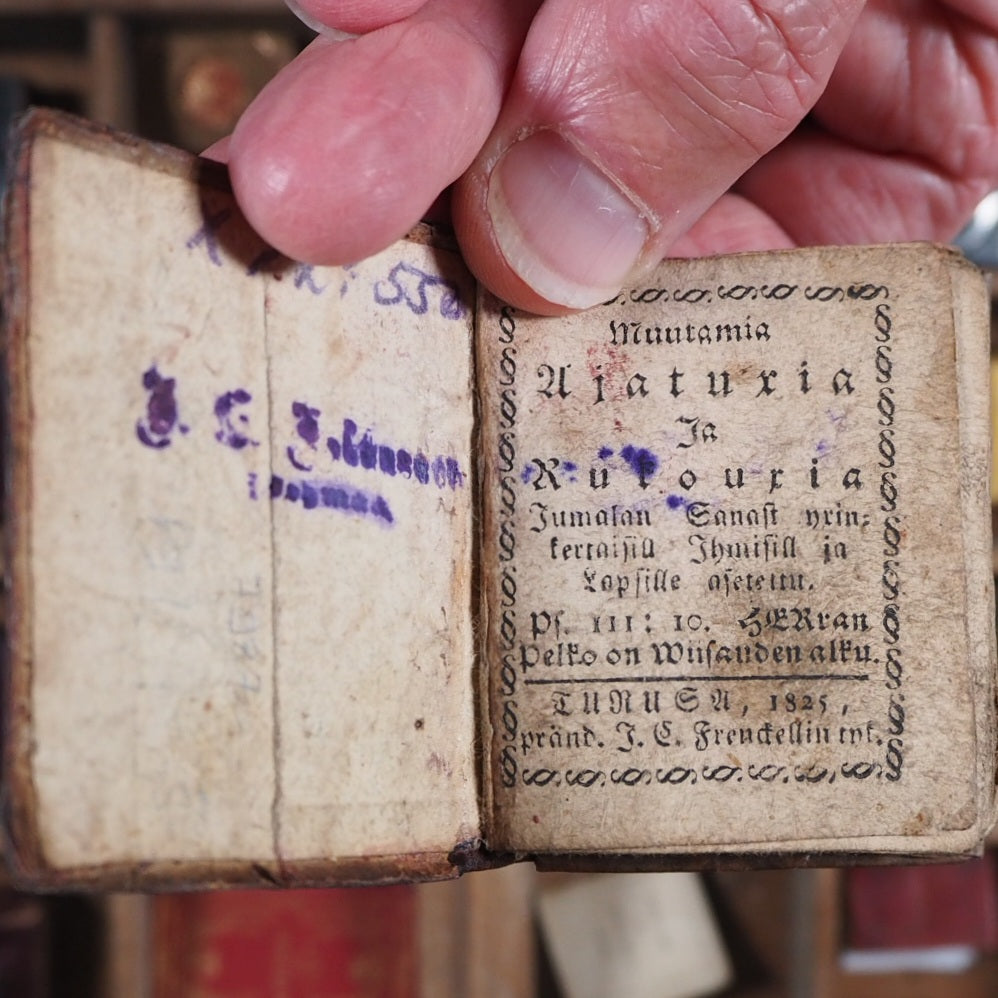 J. C.
Muutamia
Ajatuxia
Ja
Rukouxia
Jumalan Sanast yxin-
kertaisill Ihmisill ja
Lapsille asetettu.
Ps. 111: 10. HERran
Pelko on Wiisauden alku.
TURUSA, 1825,
pränd. J. C. Frenckellin tyk.